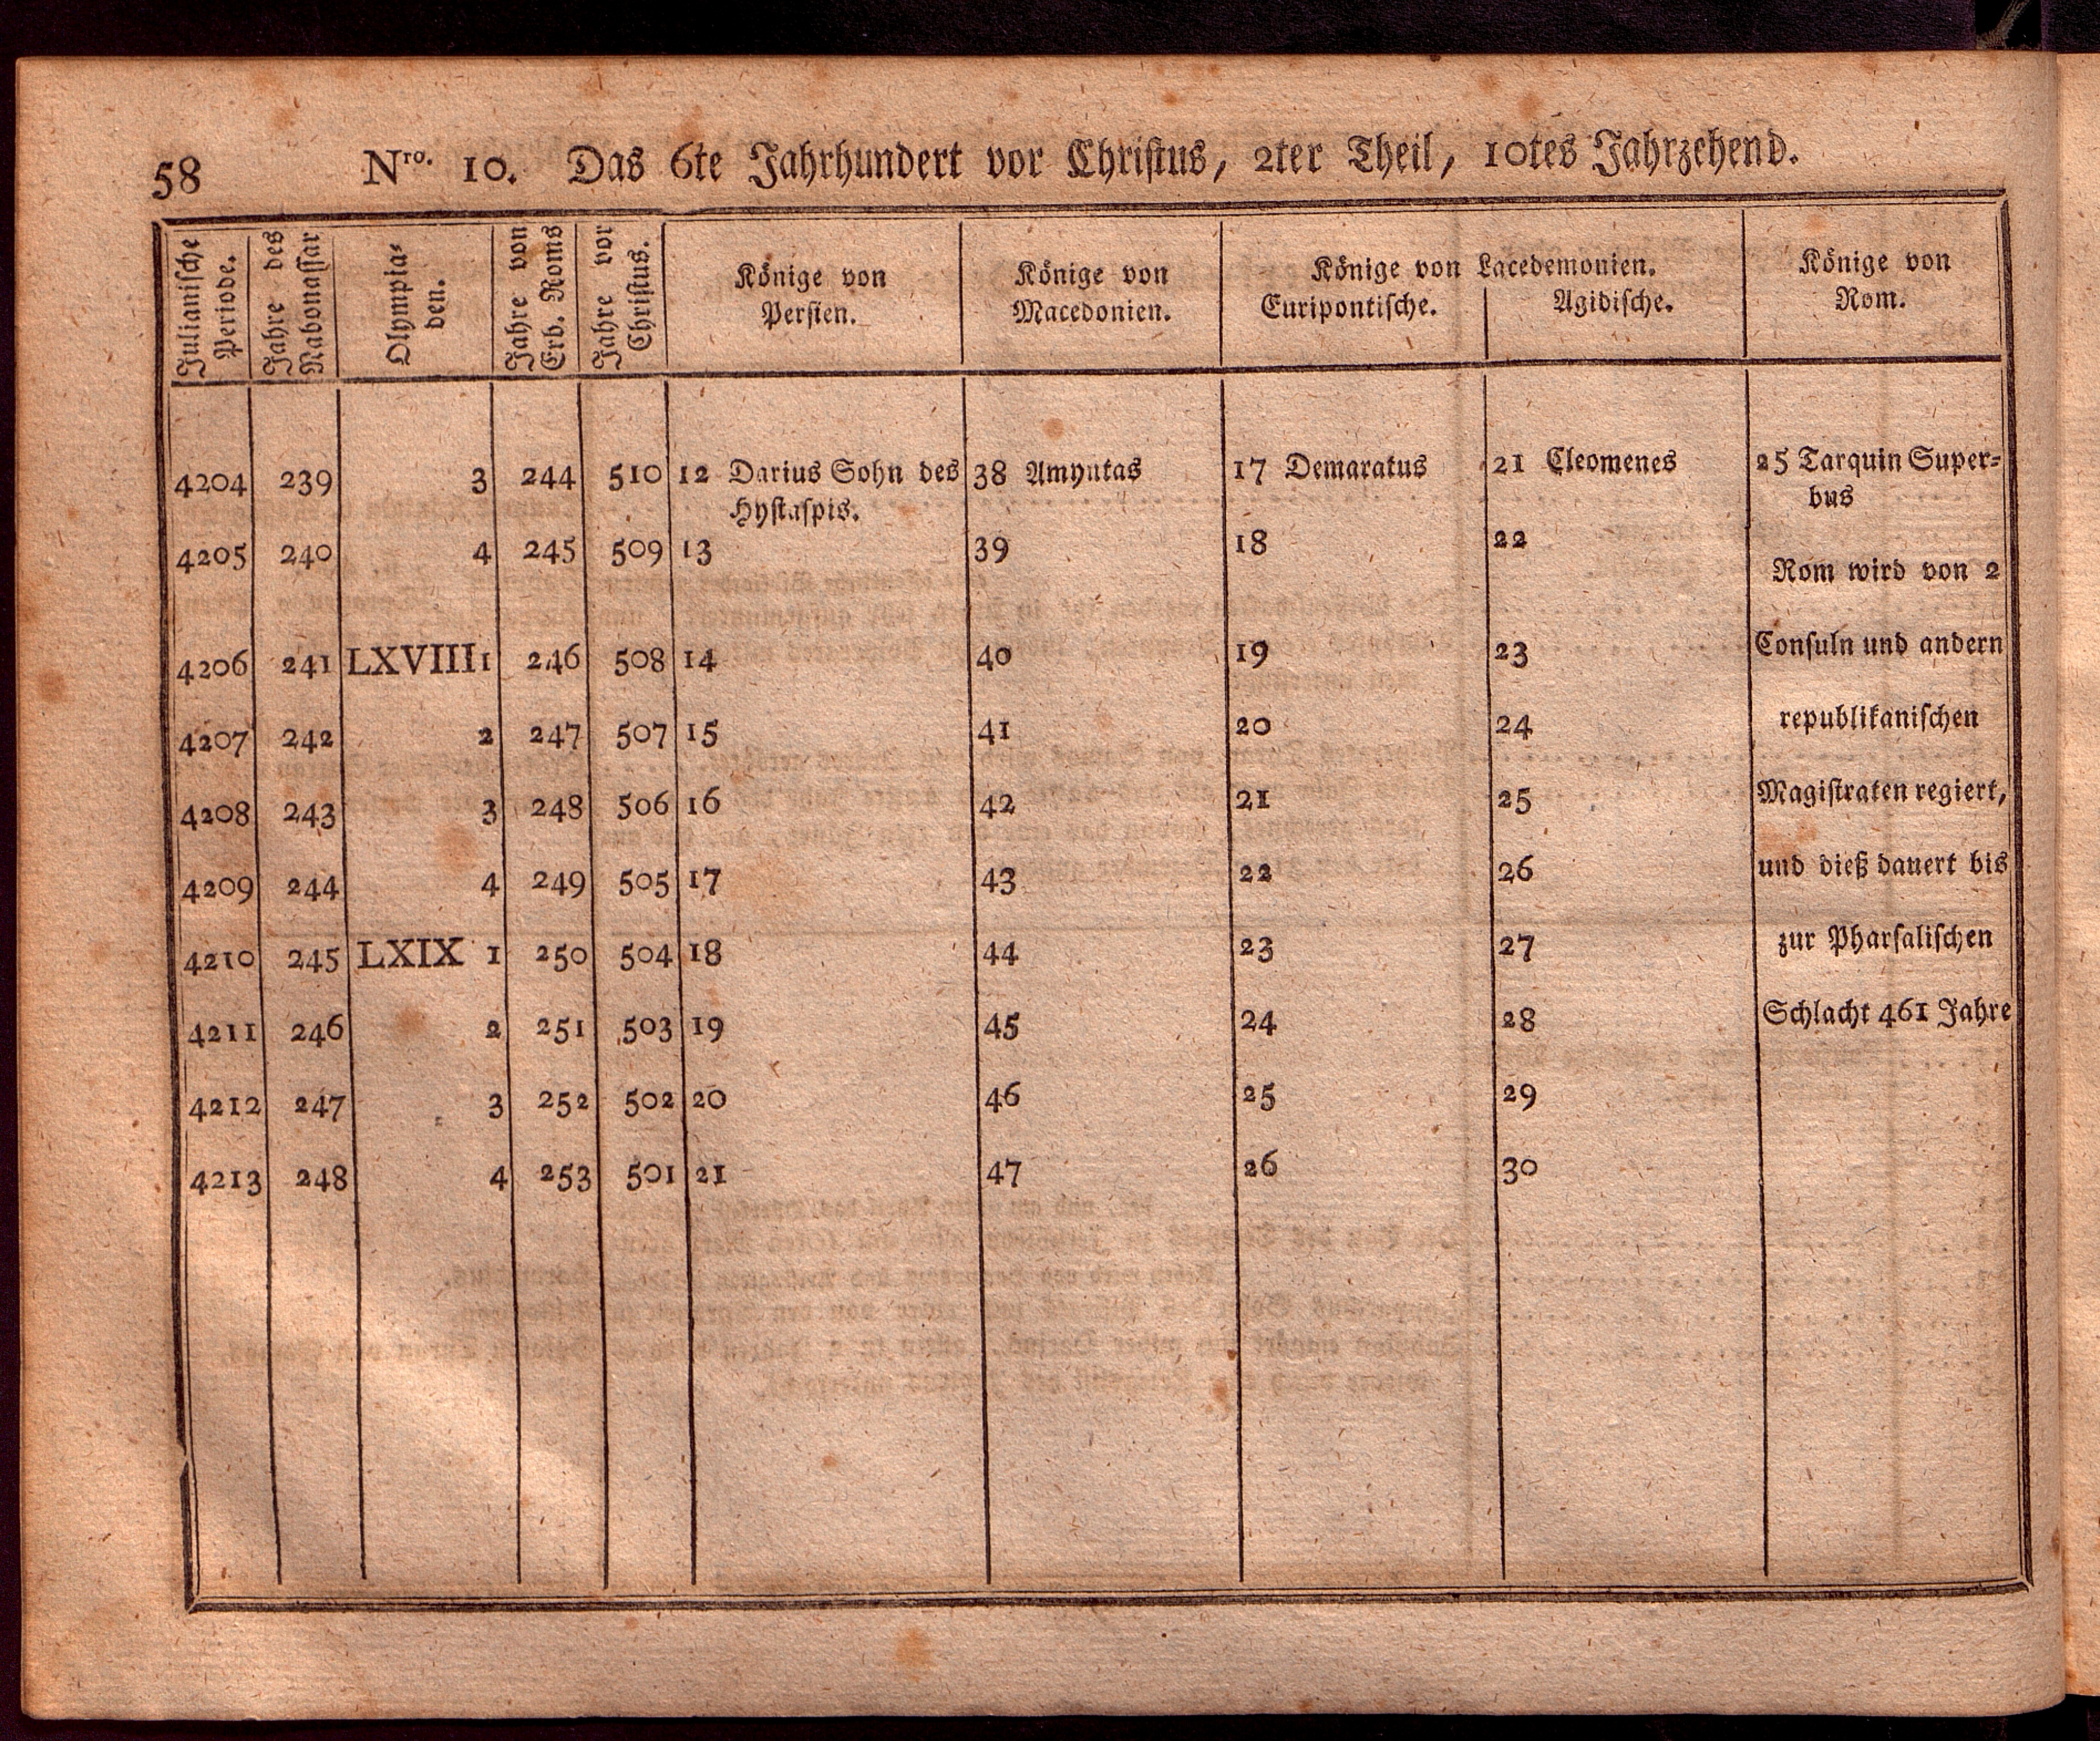 58 Nro. 10. Das 6te Jahrhundert vor Christus, 2ter Theil, 10tes Jahrzehend.
Julianische
Periode.
Jahre des
Nabonassar
Olympia-
den.
Jahre von
Erb. Roms
Jahre vor
Christus.
Könige von
Persien.
Könige von
Macedonien.
Könige von Lacedemonien.
Euripontische. Agidische.
Könige von
Rom.
4204 239 3 244 510 12 Darius Sohn des 38 Amyntas 17 Demaratus 21 Cleomenes 25 Tarquin Super-
Hystaspis. bus
4205 240 4 245 509 13 39 18 22
Rom wird von 2
4206 241 LXVIII 1 246 508 14 40 19 23 Consuln und andern
4207 242 2 247 507 15 41 20 24 republikanischen
4208 243 3 248 506 16 42 21 25 Magistraten regiert,
4209 244 4 249 505 17 43 22 26 und dieß dauert bis
4210 245 LXIX 1 250 504 18 44 23 27 zur Pharsalischen
4211 246 2 251 503 19 45 24 28 Schlacht 461 Jahre
4212 247 3 252 502 20 46 25 29
4213 248 4 253 501 21 47 26 30